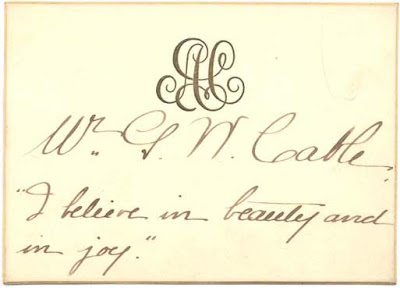 Mr. G. W. Cable.
"I believe in beauty and
in joy."